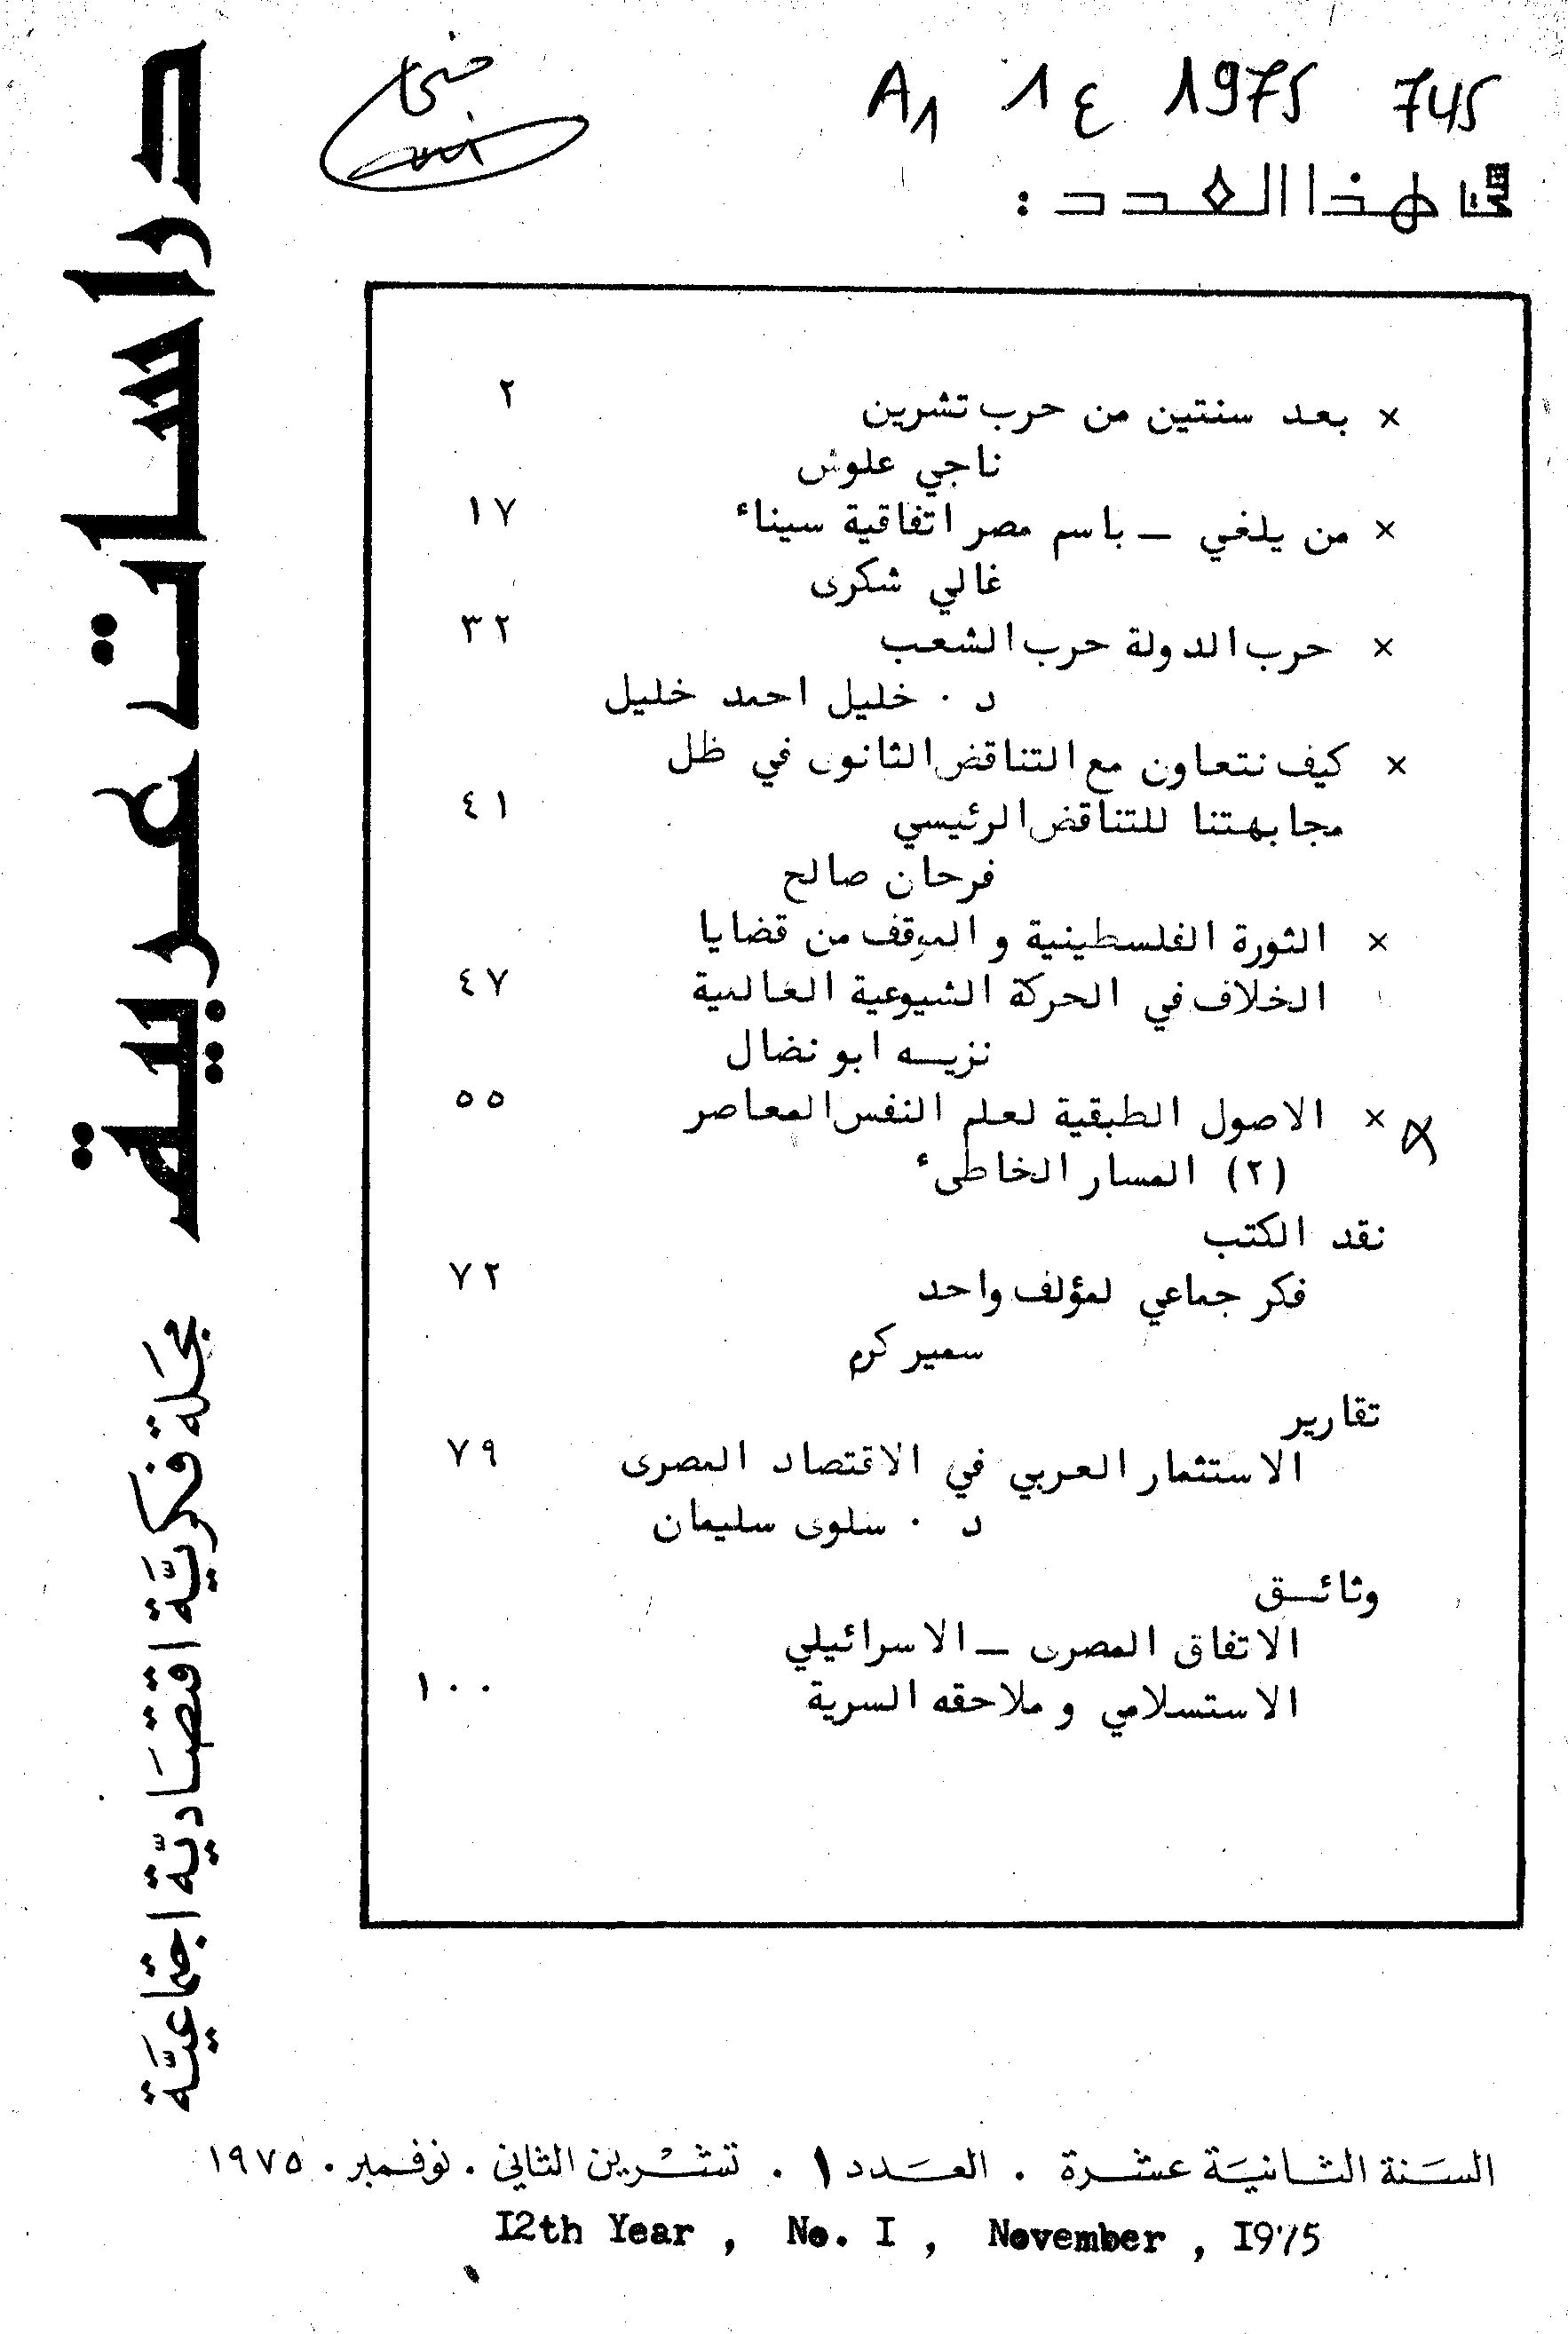 745 1975 ع 1 A1
في هذا العدد :
دراسات عربية
مجلة فكريّة اقتصاديّة اجتماعيّة
× بعد سنتين من حرب تشرين ٢
ناجي علوش
× من يلغي ــ باسم مصر اتفاقية سيناء ١٧
غالي شكرى
× حرب الدولة حرب الشعب ٣٢
د ٠ خليل احمد خليل
× كيف نتعاون مع التناقض الثانوى في ظل
مجابهتنا للتناقض الرئيسي ٤١
فرحان صالح
× الثورة الفلسطينية و الموقف من قضايا
الخلاف في الحركة الشيوعية العالمية ٤٧
نزيــه ابو نضال
× الاصول الطبقية لعلم النفس المعاصر ٥٥
(٢) المسار الخاطىء
نقد الكتب
فكر جماعي لمؤلف واحد ٧٢
سمير كرم
تقارير
الاستثمار العربي في الاقتصاد المصرى ٧٩
د ٠ سلوى سليمان
وثائــق
الاتفاق المصرى ــ الاسرائيلي
الاستسلامي و ملاحقه السرية ١٠٠
السنة الثانية عشرة . العدد ١ . تشرين الثاني . نوفمبر . ١٩٧٥
I2th Year , No. I , November , I975